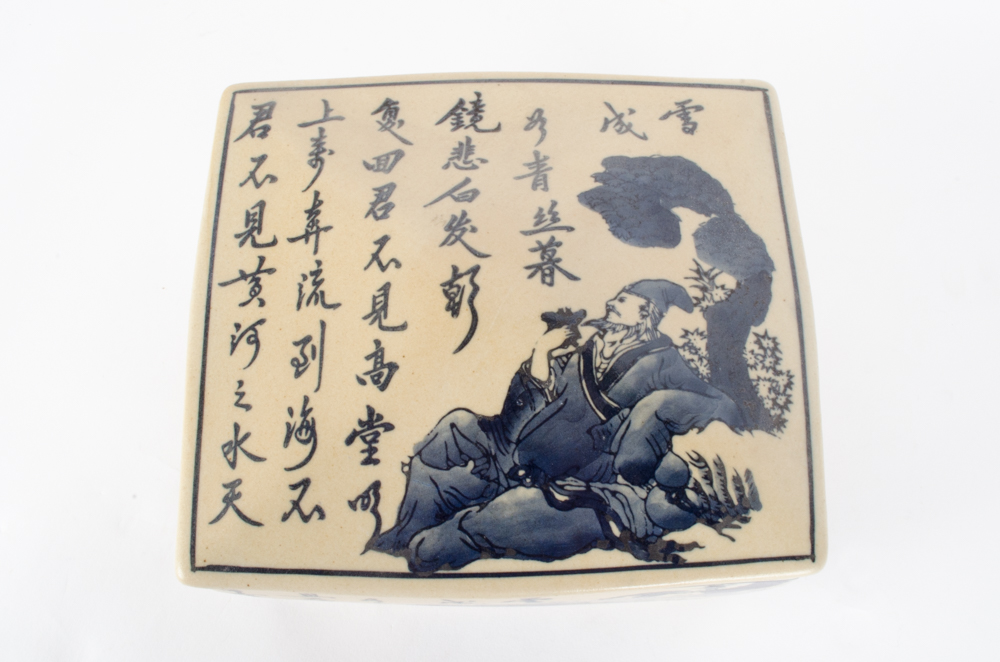 君不見黄河之水天
上来奔流到海不
复回君不見高堂明
鏡悲白发朝
如青丝暮
成
雪